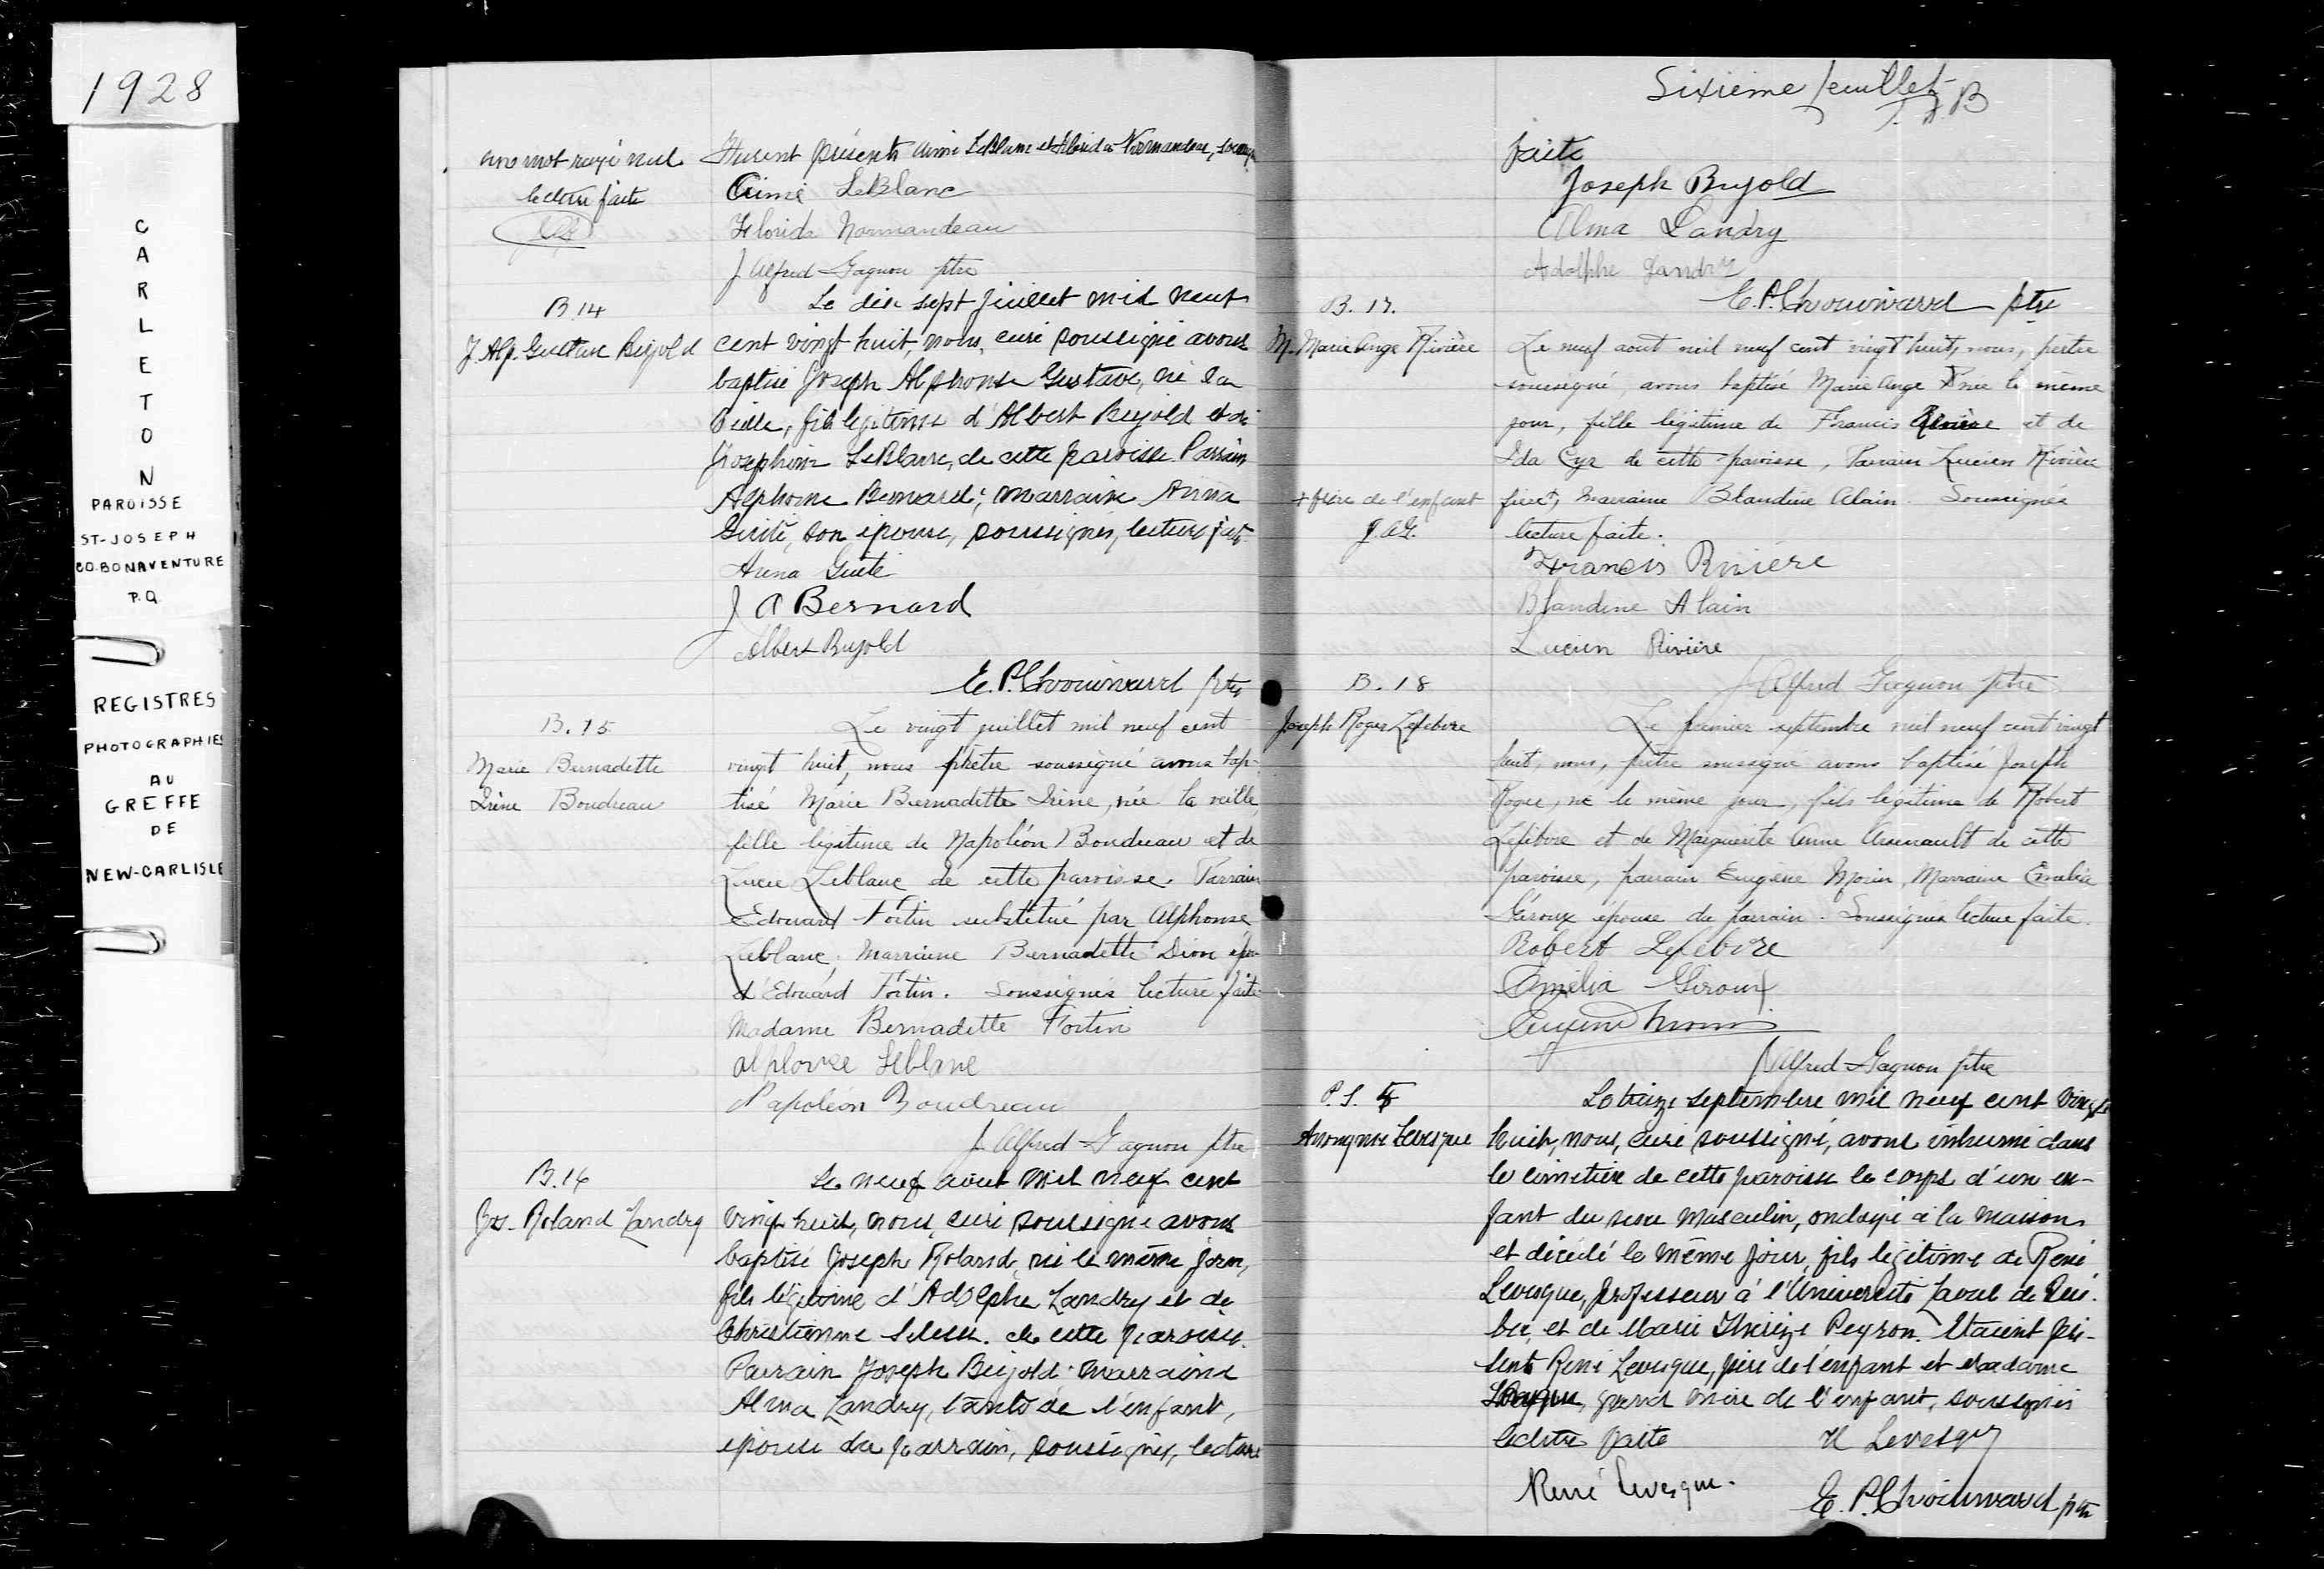 1928
CARLETON
PAROISSE
ST-JOSEPH
CO. BONAVENTURE
P.Q.
REGISTRES
PHOTOGRAPHIES
AU
GREFFE
DE
NEW-CARLISLE
un mot rayé nul
lecture faite
Furent présents Aimé LeBlanc et Florida Normandeau,
Aimé LeBlanc
Florida Normandeau
J Alfred Gagnon ptre
B.14
J. Alp. Gustave Bujold
Le dix sept juillet mil neuf
cent vingt huit, nous, curé soussigné avons
baptisé Joseph Alphonse Gustave, né la
veille, fils légitime d'Albert Bujold et de
Josephine LeBlanc, de cette paroisse. Parrain
Alphonse Bernard; marraine Anna
Guité, son épouse, soussignés, lecture faite.
Anna Guité
J A Bernard
Albert Bujold
E. P. Chouinard ptre
B.15
Marie Bernadette
Irène Boudreau
Le vingt juillet mil neuf cent
vingt huit, nous prêtre soussigné avons bap-
tisé Marie Bernadette Irène, née la veille,
fille légitime de Napoléon Boudreau et de
Lucie Leblanc de cette paroisse. Parrain
Edouard Fortin substitué par Alphonse
Leblanc, Marraine Bernadette Dion
d'Edouard Fortin. Soussignés lecture faite
Madame Bernadette Fortin
Alphonse Leblanc
Napoléon Boudreau
J. Alfred Gagnon ptre
B.16
Jos. Roland Landry
Le neuf août mil neuf cent
vingt huit, nous, curé soussigné avons
baptisé Joseph Roland, né le même jour,
fils légitime d'Adolphe Landry et de
Christienne de cette paroisse.
Parrain Joseph Bujold; marraine
Alma Landry, tante de l'enfant,
épouse du parrain, soussignés, lecture
Sixième feuillet
faite
Joseph Bujold
Alma Landry
Adolphe Landry
E. P. Chouinard ptre
B. 17.
M. Marie Ange Rivière
+ frère de l'enfant
J.A.G.
Le neuf août mil neuf cent vingt huit, nous, prêtre
soussigné avons baptisé Marie Ange née le même
jour, fille légitime de Francis Rivière et de
Ida Cyr de cette paroisse, Parrain Lucien Rivière
frère+, Marraine Blandine Alain. Soussignés
lecture faite.
Francis Rivière
Blandine Alain
Lucien Rivière
J Alfred Gagnon ptre
B. 18
Joseph Roger Lefebvre
Le premier septembre mil neuf cent vingt
huit, nous, prêtre soussigné avons baptisé Joseph
Roger, né le même jour, fils légitime de Robert
Lefebvre et de Marguerite Anne Arsenault de cette
paroisse, parrain Eugène Morin, Marraine
Giroux épouse du parrain. Soussignés lecture faite.
Robert Lefebvre
Emélia Giroux
Eugène Morin
J Alfred Gagnon ptre
P. S.
Anonyme Levesque
Le treize septembre mil neuf cent vingt
huit, nous, curé soussigné, avons inhumé dans
le cimetière de cette paroisse le corps d'un en-
fant du sexe masculin, ondoyé à la maison
et décédé le même jour, fils légitime de René
Levesque, professeur à l'Université Laval de Qué-
bec, et de Marie Thérèze Peyron. Étaient pré-
sents René Levesque, père de l'enfant et Madame
Levesque, grand mère de l'enfant, soussignés
lecture faite
Levesque
René Levesque.
E. P. Chouinard ptre